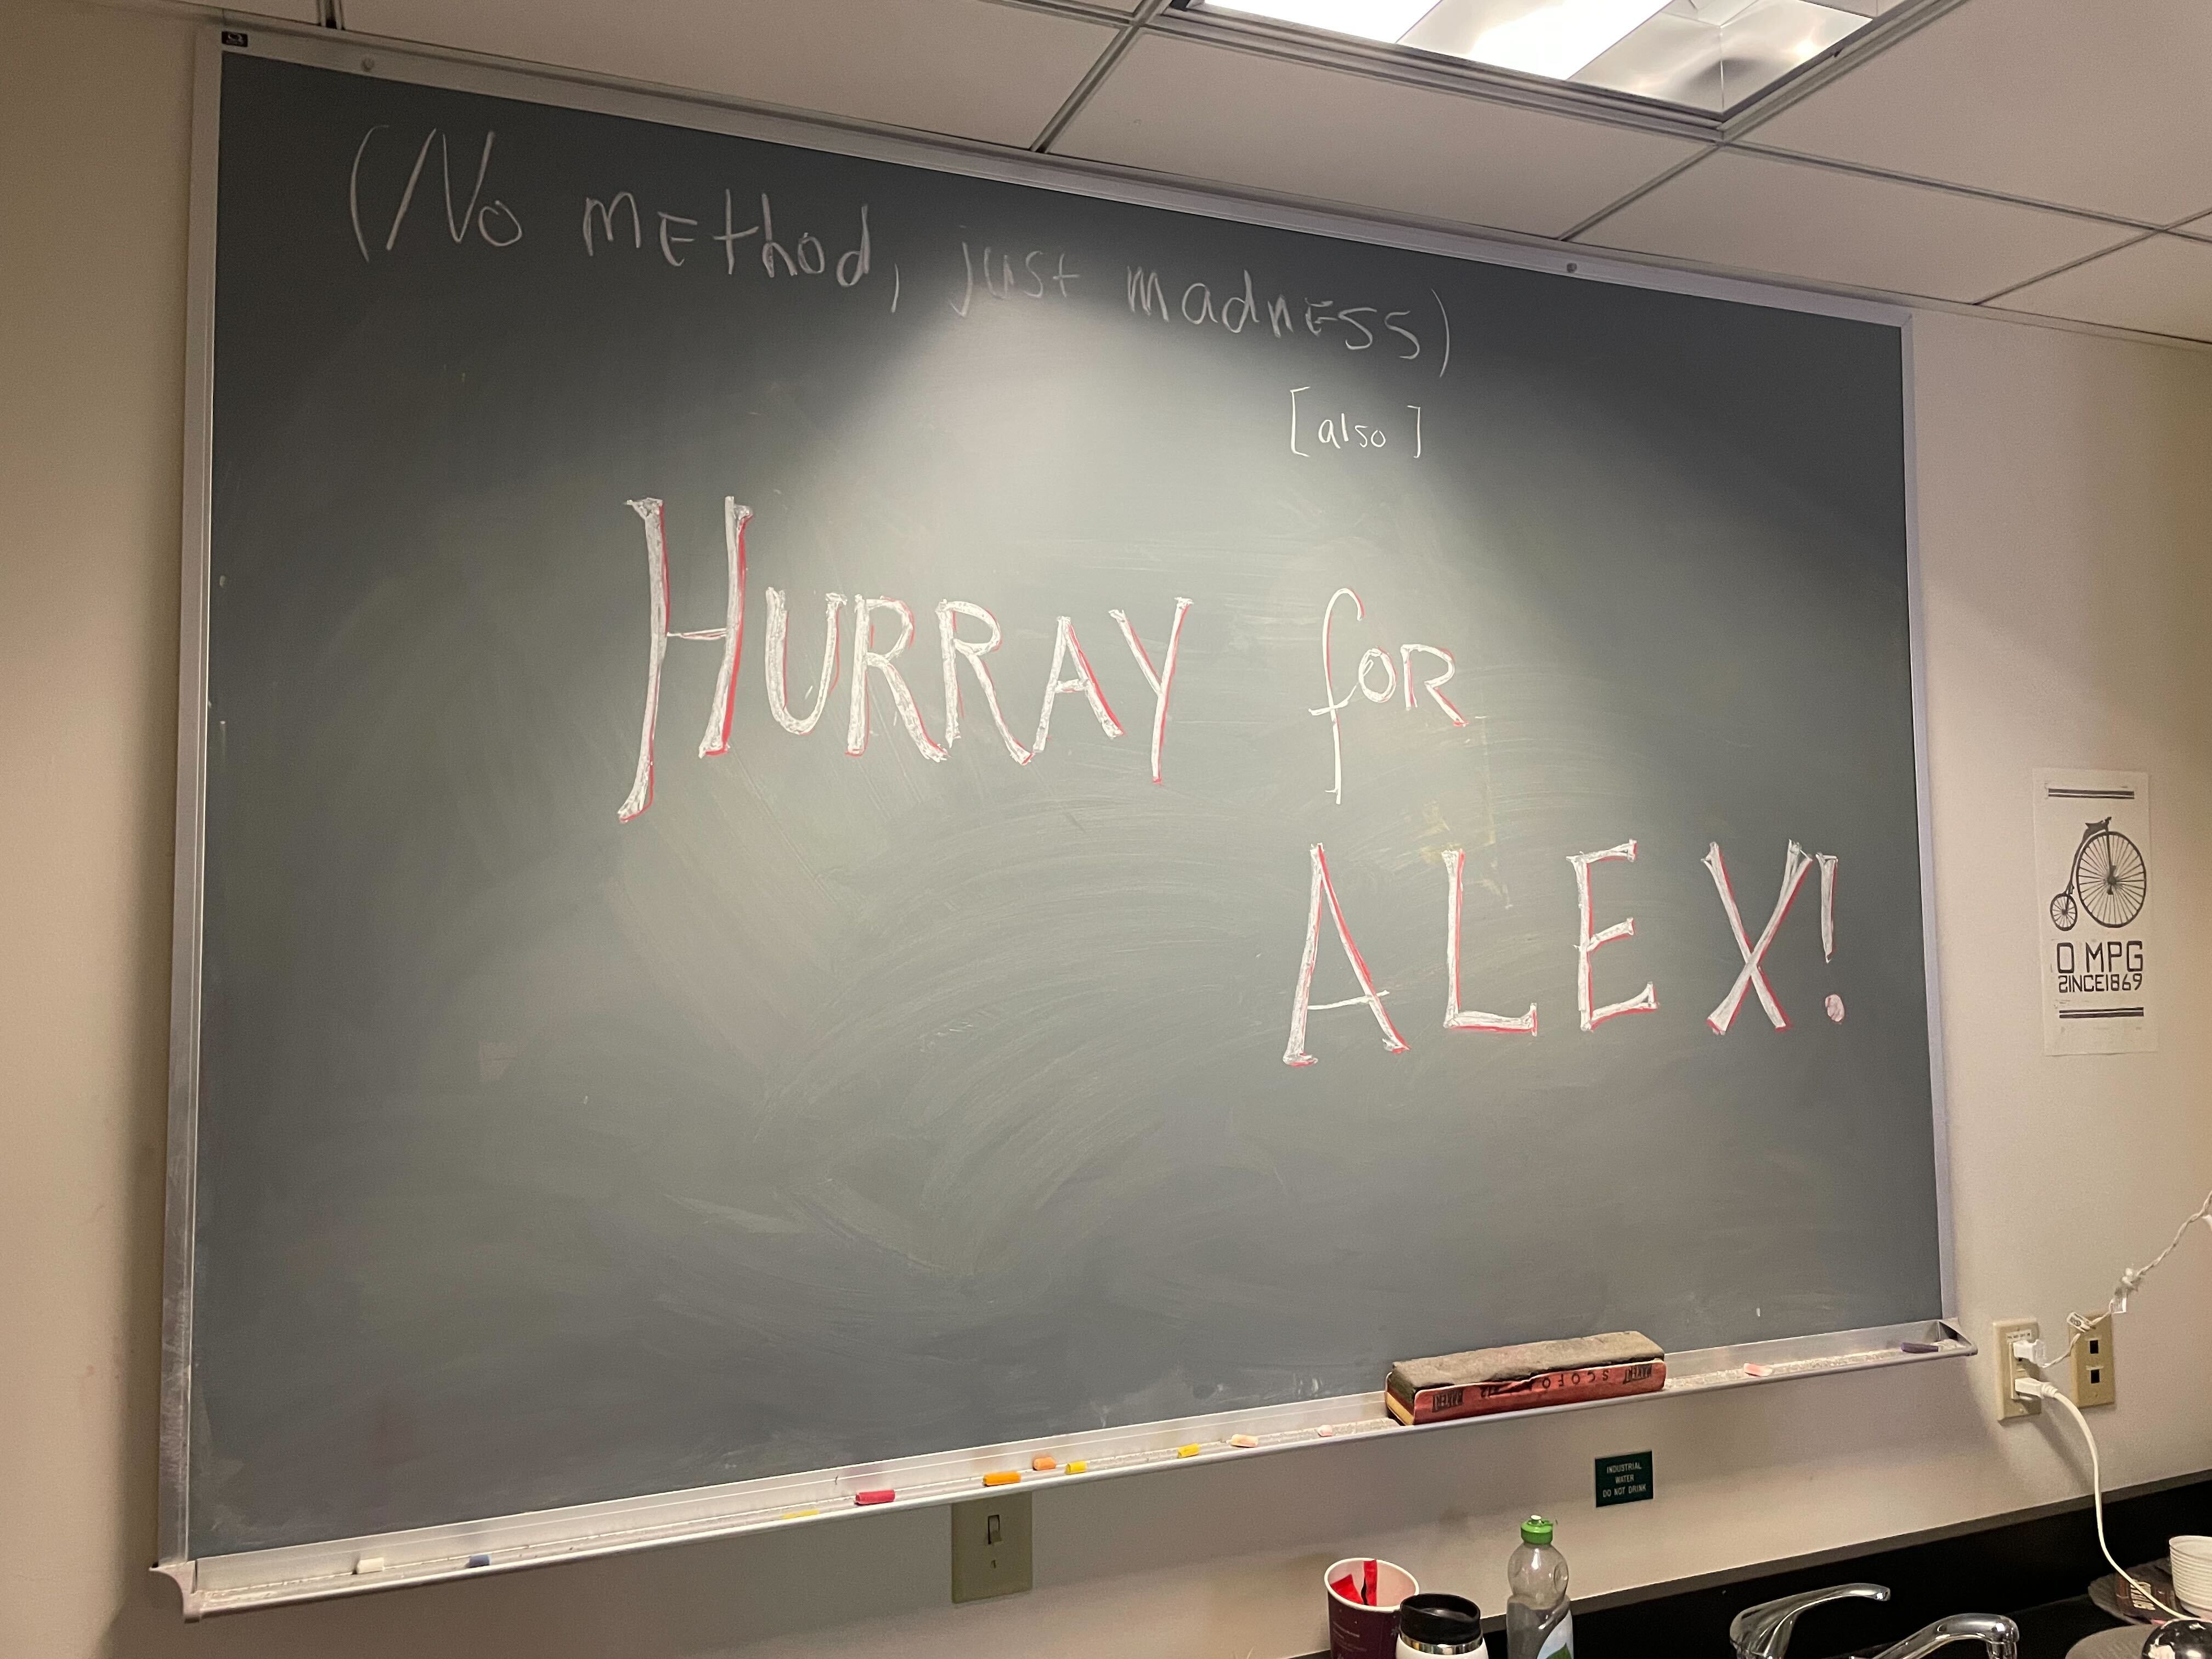 (No method, just madness)
[also]
HURRAY for
ALEX!
0 MPG
SINCE1869
INDUSTRIAL
WATER
DO NOT DRINK